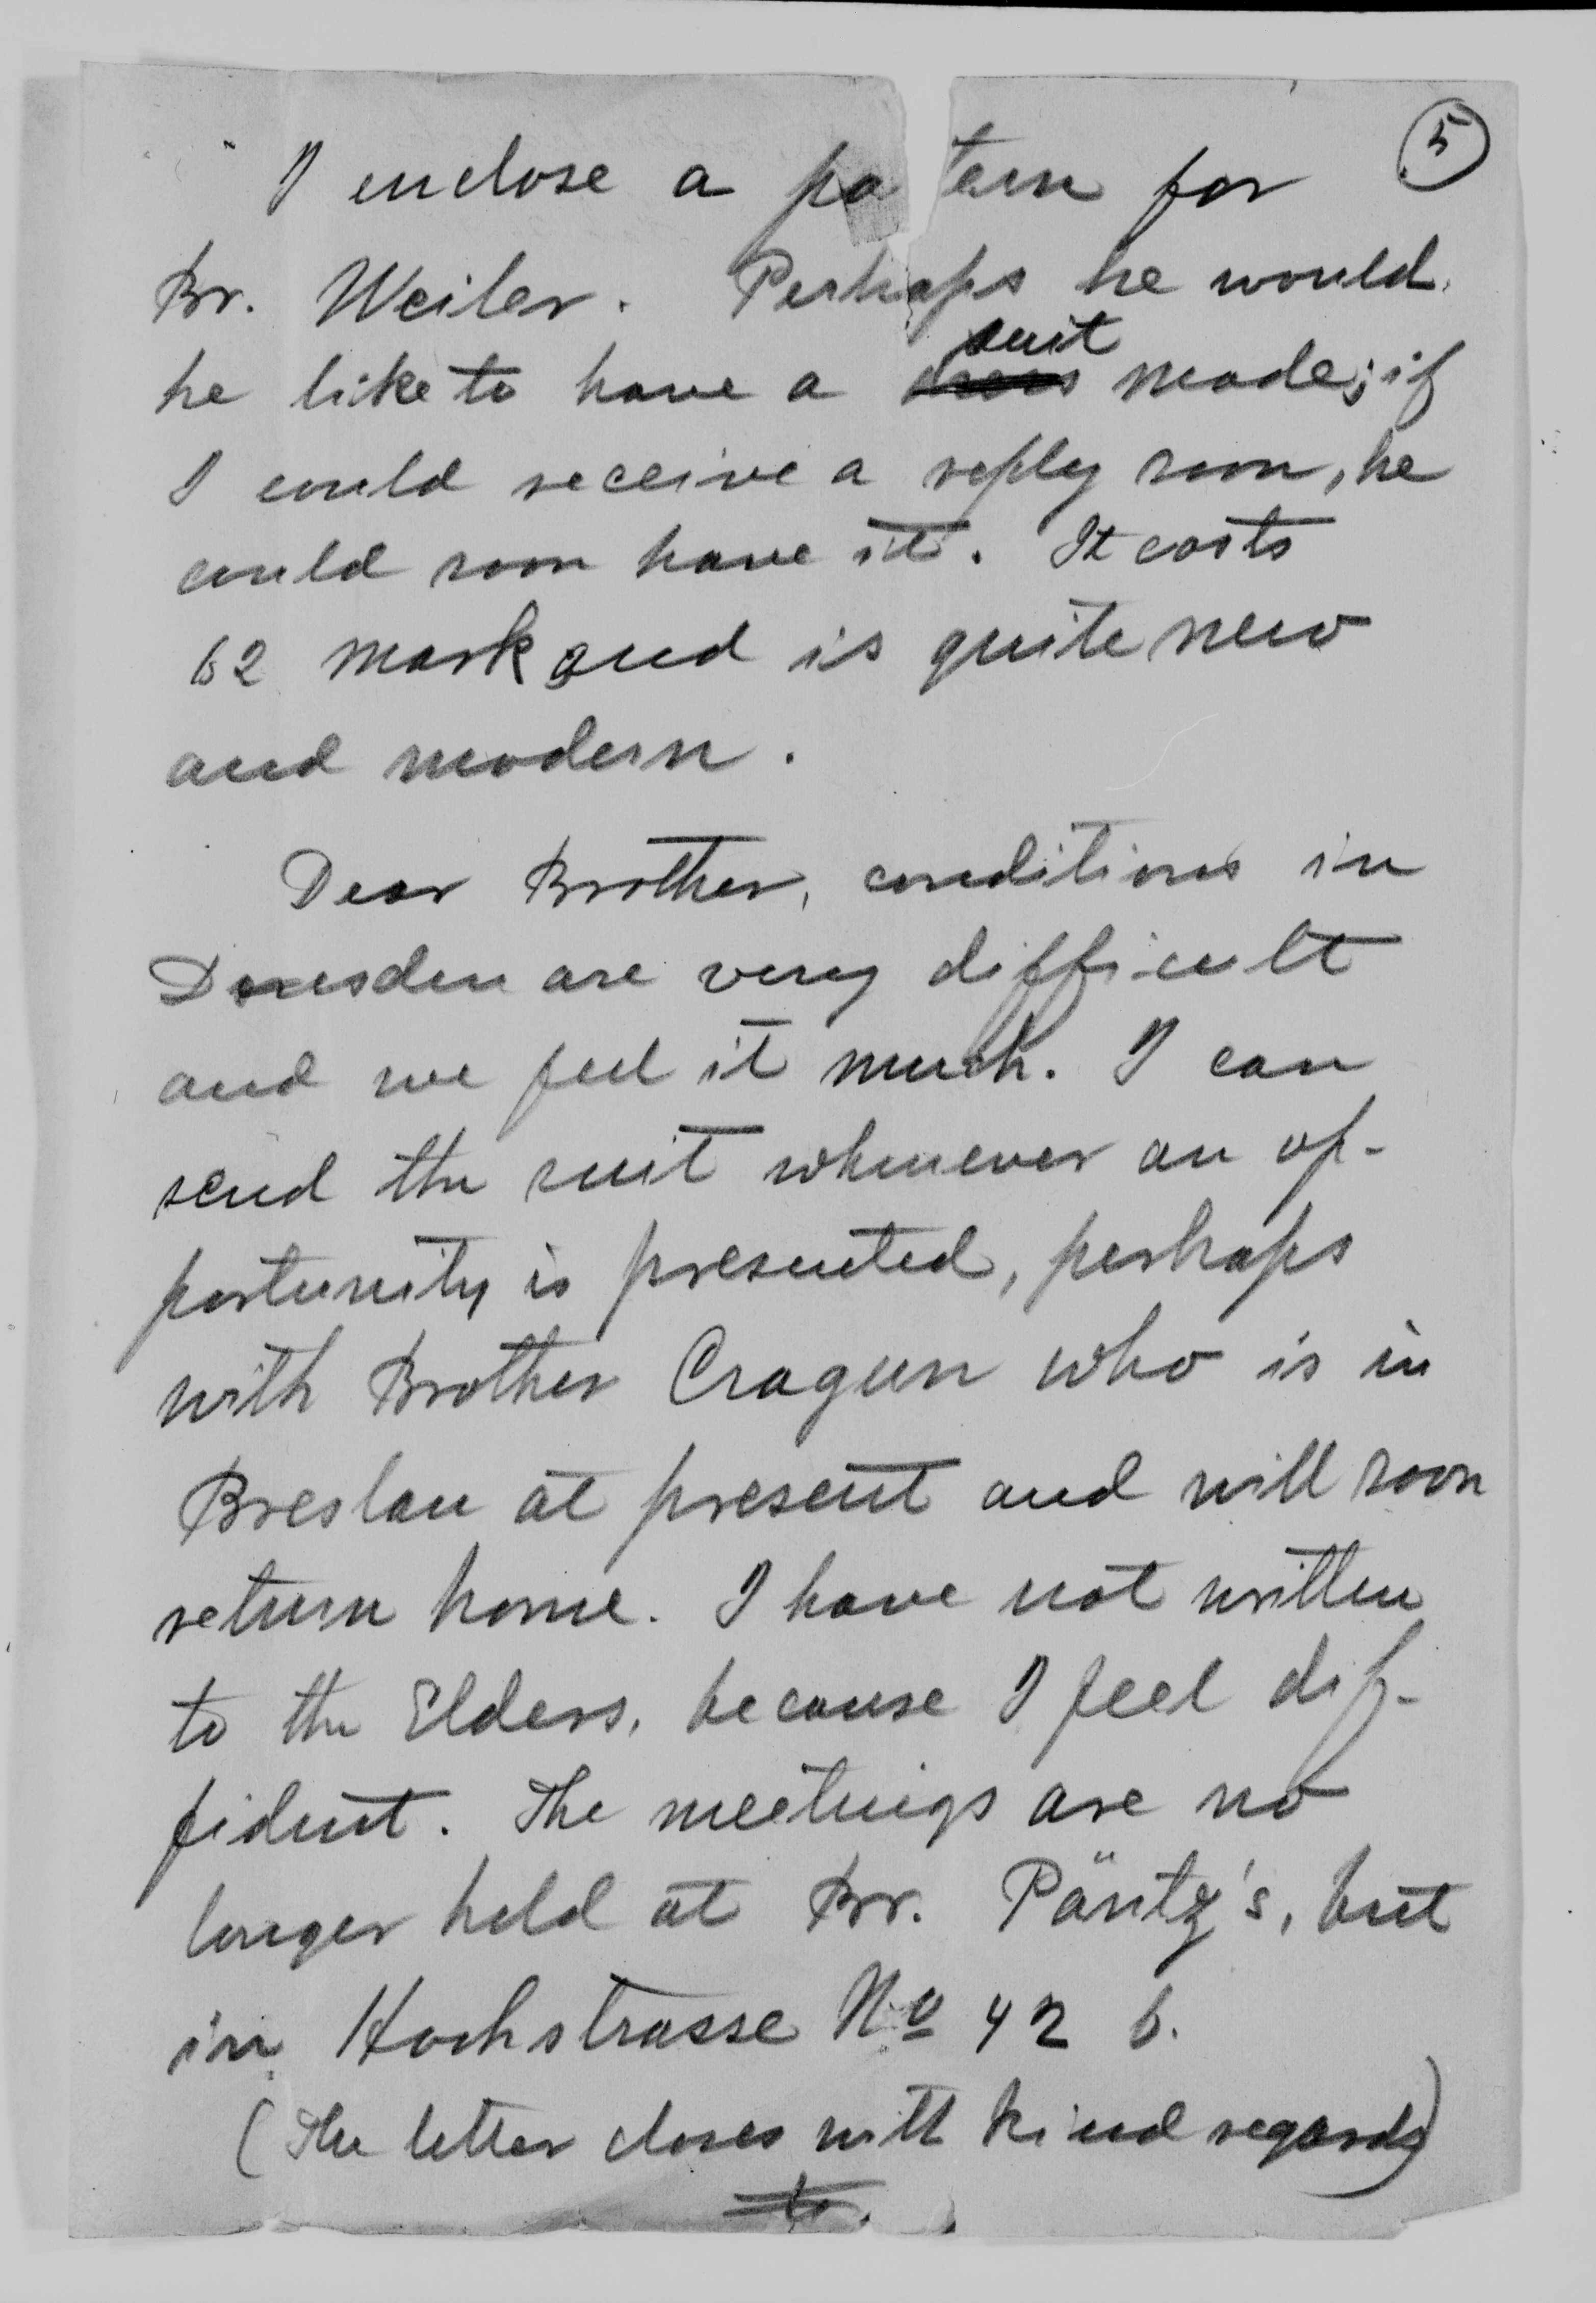 5
I enclose a pa tern for
Br. Weiler. Perhaps he would
he like to have a dress suit made; if
I could receive a reply soon, he
could soon have it. It costs
62 mark and is quite new
and modern.
Dear Brother, conditions in
Dresden are very difficult
and we feel it much. I can
send the suit whenever an op-
portunity is presented, perhaps
with Brother Cragun who is in
Breslau at present and will soon
return home. I have not written
to the Elders, because I feel dif-
fident. The meetings are no
longer held at Br. Päntz's, but
in Hochstrasse No 42 b.
(The letter closes with kind regards)
to.